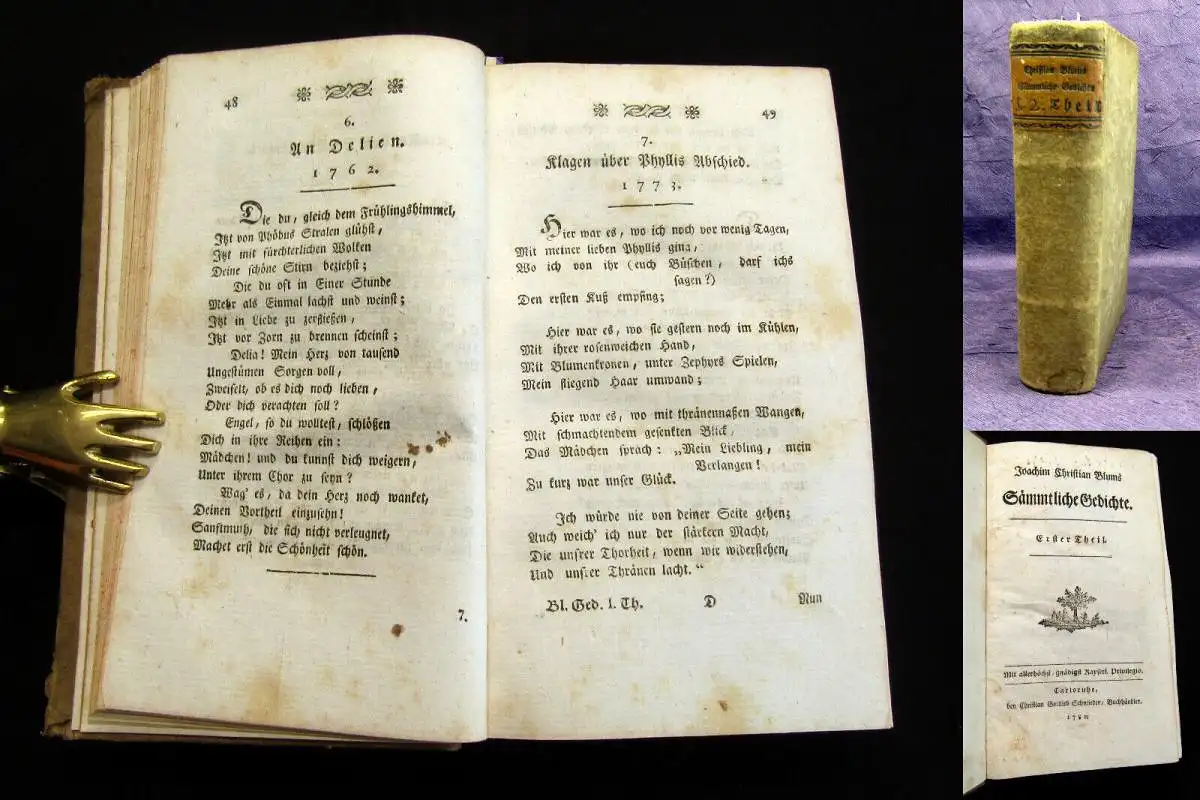 48
6.
An Delien.
1 7 6 2.
Die du, gleich dem Frühlingshimmel,
Itzt von Phöbus Stralen glühst,
Itzt mit fürchterlichen Wolken
Deine schöne Stirn beziehst;
Die du oft in Einer Stunde
Mehr als Einmal lachst und weinst;
Itzt in Liebe zu zerfließen,
Itzt vor Zorn zu brennen scheinst;
Delia! Mein Herz von tausend
Ungestümen Sorgen voll,
Zweifelt, ob es dich noch lieben,
Oder dich verachten soll?
Engel, so du wolltest, schlößen
Dich in ihre Reihen ein:
Mädchen! und du kunnst dich weigern,
Unter ihrem Chor zu seyn?
Wag' es, da dein Herz noch wanket,
Deinen Vortheil einzusehn!
Sanftmuth, die sich nicht verleugnet,
Machet erst die Schönheit schön.
7.
49
7.
Klagen über Phyllis Abschied.
1 7 7 3.
Hier war es, wo ich noch vor wenig Tagen,
Mit meiner lieben Phyllis ging,
Wo ich von ihr (euch Büschen, darf ichs
sagen?)
Den ersten Kuß empfing;
Hier war es, wo sie gestern noch im Kühlen,
Mit ihrer rosenweichen Hand,
Mit Blumenkronen, unter Zephyrs Spielen,
Mein fliegend Haar umwand;
Hier war es, wo mit thränennaßen Wangen,
Mit schmachtendem gesenkten Blick,
Das Mädchen sprach: „Mein Liebling, mein
Verlangen!
Zu kurz war unser Glück.
Ich würde nie von deiner Seite gehen;
Auch weich' ich nur der stärkern Macht,
Die unsrer Thorheit, wenn wir widerstehen,
Und unsrer Thränen lacht.“
Bl. Ged. I. Th. D Nun
Christian Blums
Sämmtliche Gedichte
1. 2. Theil
Joachim Christian Blums
Sämmtliche Gedichte.
Erster Theil.
Mit allerhöchst-gnädigst Kayserl. Privilegio.
Carlsruhe,
bey Christian Gottlieb Schmieder, Buchhändler.